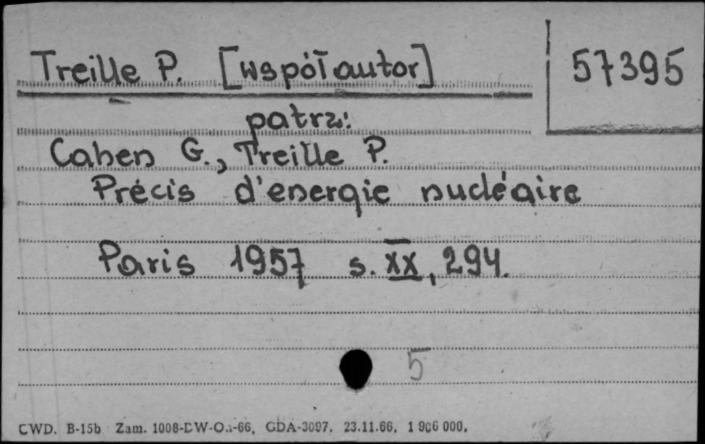 Treille P. [współautor]
57395
patrz:
Cahen G., Treille P.
Précis d'énergie nucléaire
Paris 1957 s. XX, 294.
5
CWD. B-15b Zam. 1008-DW-O.-66, GDA-3097, 23.11.66, 1 906 000,